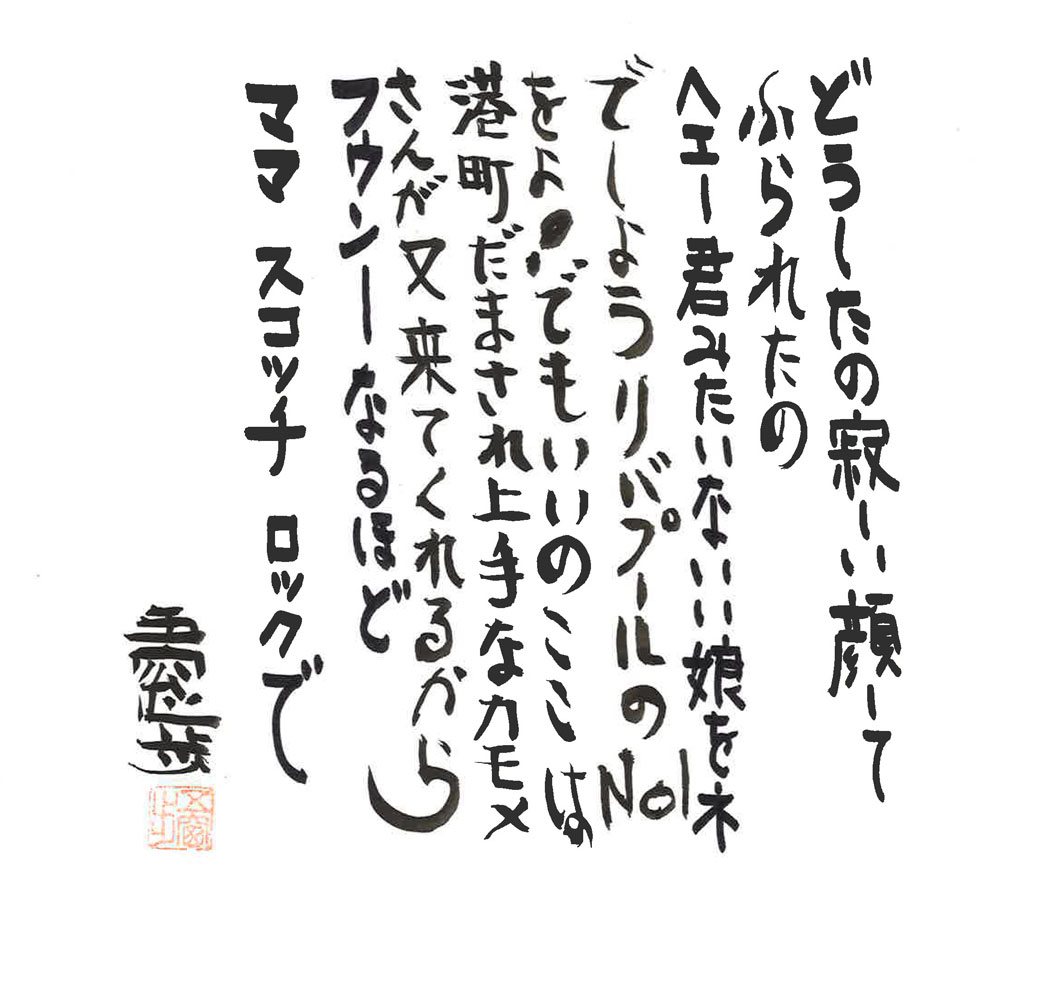 どうしたの寂しい顔して
ふられたの
ヘエー君みたいないい娘をネ
でしようリバプールのNo1
をよ でもいいのここは
港町だまされ上手なカモメ
さんが又来てくれるから
フウンーなるほど
ママ スコッチ ロックで